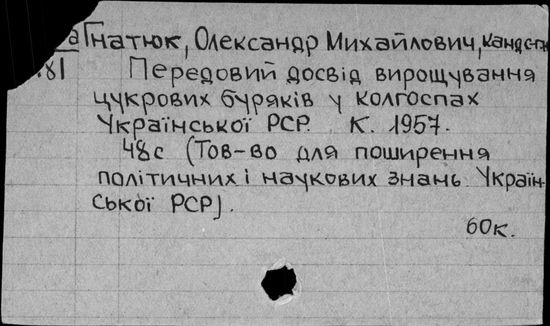 а Гнатюк, Олександр Михайлович, канд с-г
181 Передовий досвід вирощування
цукрових буряків у колгоспах
Української РСР. К. 1957.
48с (Тов-во для поширення
політичних і наукових знань Україн-
ської РСР).
60к.